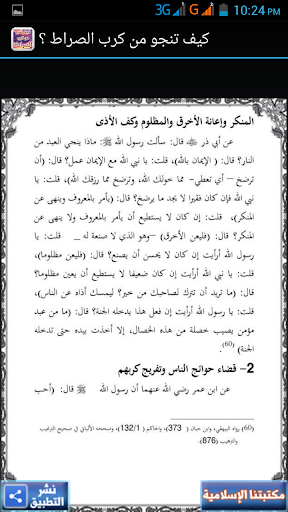 3G G 10:24 PM
كيف تنجو من كرب الصراط ؟
المنكر وإعانة الأخرق والمظلوم وكف الأذى
عن أبي ذر ﷺ قال: سألت رسول الله ﷺ: ماذا ينجي العبد من
النار؟ قال: (الإيمان بالله)، قلت: يا نبي الله مع الإيمان عمل؟ قال: (أن
ترضخ – أي تعطي- مما خولك الله، وترضخ مما رزقك الله)، قلت: يا
نبي الله فإن كان فقيرا لا يجد ما يرضخ؟ قال: (يأمر بالمعروف وينهى عن
المنكر)، قلت: إن كان لا يستطيع أن يأمر بالمعروف ولا ينهى عن
المنكر؟ قال: (فليعن الأخرق) –وهو الذي لا صنعة له _ قلت: يا
رسول الله أرأيت إن كان لا يحسن أن يصنع؟ قال: (فليعن مظلوما)،
قلت: يا نبي الله أرأيت إن كان ضعيفا لا يستطيع أن يعين مظلوما؟
قال: (ما تريد أن تترك لصاحبك من خير؟ ليمسك أذاه عن الناس)،
قلت: يا رسول الله أرأيت إن فعل هذا يدخله الجنة؟ قال: (ما من عبد
مؤمن يصيب خصلة من هذه الخصال، إلا أخذت بيده حتى تدخله
الجنة) (60).
2- قضاء حوائج الناس وتفريج كربهم
عن ابن عمر رضي الله عنهما أن رسول الله ﷺ قال: (أحب
(60) رواه البيهقي، وابن حبان ( 373)، والحاكم ( 132/1) وصححه الألباني في صحيح الترغيب
والترهيب (876)
نشر
التطبيق
مكتبتنا الإسلامية